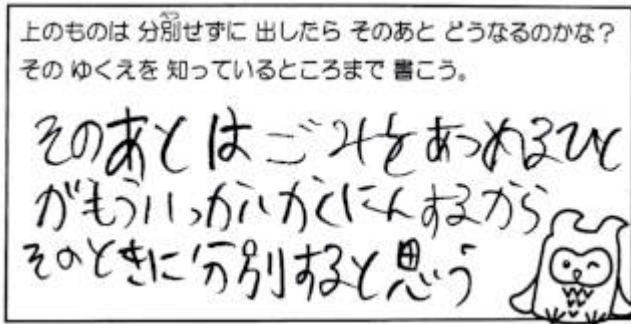 上のものは 分別せずに 出したら そのあと どうなるのかな？
その ゆくえを 知っているところまで 書こう。
そのあとは ごみをあつめるひと
がもういっかいかくにんするから
そのときに分別すると思う